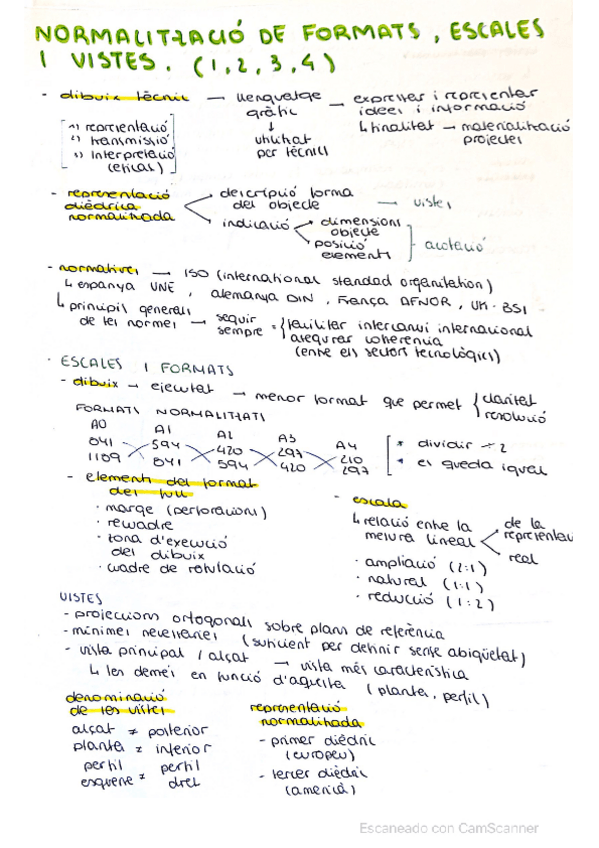 NORMALITZACIÓ DE FORMATS, ESCALES
I VISTES. (1, 2, 3, 4)
- dibuix tècnic → llenguatge gràfic → expressar i representar idees i informació
↓ utilitzat per tècnics
↳ finalitat → materialització projectes
1) representació
2) transmissió
3) interpretació
(eficaç)
- representació dièdrica normalitzada
descripció forma del objecte → vistes
indicació
dimensions objecte
posició elements
acotació
- normatives → ISO (international standad organitation)
↳ espanya UNE, alemanya DIN, França AFNOR, UK · BSI
↳ principis generals de les normes → seguir sempre =
facilitar intercanvi internacional
assegurar coherència
(entre els sectors tecnològics)
· ESCALES I FORMATS
- dibuix → ejecutat → menor format que permet { claritat
resolució
FORMATS NORMALITZATS
A0 A1 A2 A3 A4
841 594 420 297 210
1189 841 594 420 297
* dividir ÷ 2
* es queda igual
- elements del format
del full
· marge (perforacions)
· recuadre
· zona d'execució
del dibuix
· cuadre de rotulació
- escala
↳ relació entre la
mesura lineal
de la
representa
real
· ampliació (2:1)
· natural (1:1)
· reducció (1:2)
VISTES
- projeccions ortogonals sobre plans de referència
- mínimes necessaries (suficient per definir sense abigüetat)
- vista principal / alçat → vista més característica
↳ les demés en funció d'aquesta (planta, perfil)
denominació
de les vistes
alçat ≠ posterior
planta ≠ inferior
perfil perfil
esquerre ≠ dret
representació
normalitzada
- primer dièdric
(europeu)
- tercer dièdric
(americà)
Escaneado con CamScanner